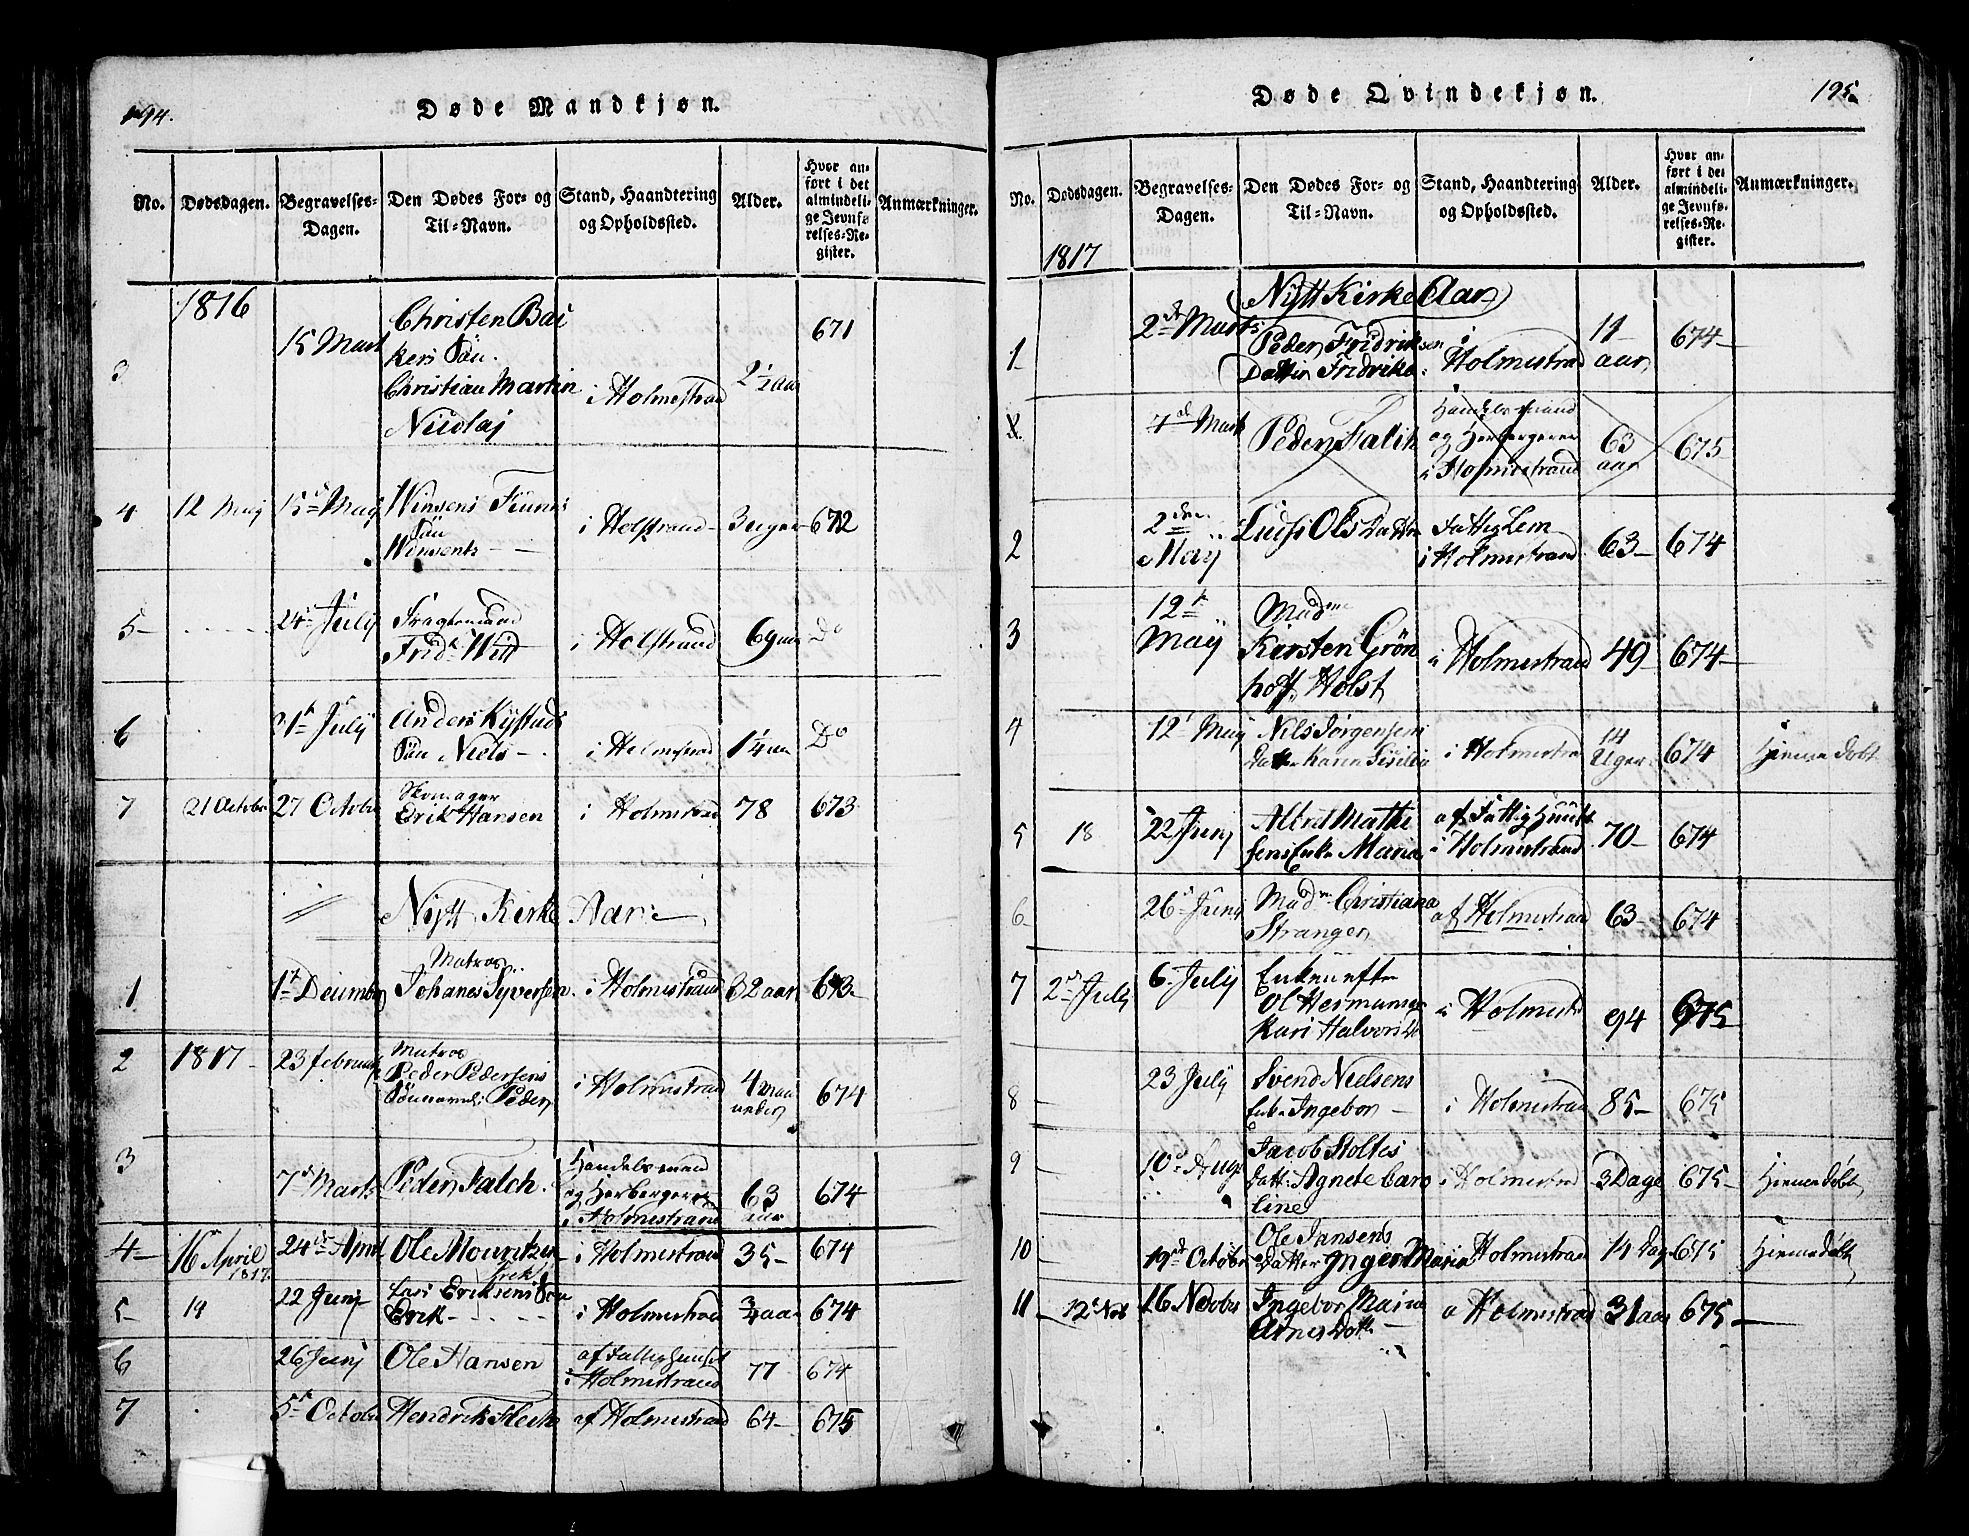 194.
Døde Mandkjøn.
No.
Dødsdagen.
Begravelses-
Dagen.
Den Dødes For- og
Til-Navn.
Stand, Haandtering
og Opholdssted.
Alder.
Hvor an-
ført i det
almindeli-
ge Jevnfø-
relses-Re-
gister.
Anmærkninger.
1816
3
15 Mart
Christen Bai
kers Søn.
Christian Martin
Nicolaj
i Holmestrand
2 1/2 Aar
671
4
12 May
15 May
Winsens
Søn
Winsents
i Holstrand
3 uger
672
5
24 July
Fragtemand
Frid. Witt
i Holstrand
69 aar
Do
6
July
Anders Kystuds
Søn Niels
i Holmestrand
1 1/4 aar
Do
7
21 Octobr
27 Octobr
Skomager
Erik Hansen
i Holmestrand
78
673
Nytt Kirke Aar
1
1t Decembr
Matros
Johanes Syversen
i Holmestrand
32 aar
673
2
1817
23 februar
Matros
Peder Pedersens
Peder
i Holmestrand
4 maa
neder
674
3
7d Marts
Peder Falch
Handelsmand
og Herbergerer
i Holmestrand
63
aar
674
4
16 April
1817
24de April
Ole Mouritzen
i Holmestrand
35
674
5
19
22 Junj
Lars Eriksens Søn
Erik
i Holmestrand
3/4 aar
674
6
26 Junj
Ole Hansen
af Fattighuuset
i Holmestrand
77
674
7
5t Octobr
Hendrik Fleck
af Holmestrand
64
675
Døde Qvindekjøn.
195
No.
Dødsdagen.
Begravelses-
Dagen.
Den Dødes For- og
Til-Navn.
Stand, Haandtering
og Opholdssted.
Alder.
Hvor an-
ført i det
almindeli-
ge Jevnfø-
relses-Re-
gister.
Anmærkninger.
1817
Nytt Kirke Aar
1
2d Marts
Peder Fridriksen
Datter Fridrike
i
Holmestrand
11
aar
674
7de Mart
Peden Falck
Handelsmand
og Herbergerer
i Holmestrand
63
aar
675
2
2den
May
Ols Datter
Fattig Lem
i Holmestrand
63
674
3
12t
May
Madme
Karsten Grøn
hoff Holst
i Holmestrand
49
674
4
12t May
Nils Jørgensens
Datter Karen
i Holmestrand
14
Uger
674
Hiemme Døbt
5
18
22 Junj
Mathi
sens Enke Maria
af Fattig Huuset
i Holmestrand
70
674
6
26 Junj
Madm Christiana
Stranger
af Holmestrand
63
674
7
2d July
6 July
Enken efter
Ol Hermansen
Kari Halvorsd
i Holmestr
94
675
8
23 July
Svend Nielsens
Enke Ingebor
i Holmestrand
85
675
9
10d Augs
Jacob Stoltes
Datt: Agnete Caro
line
i Holmestrand
3 Dage
675
Hiemme Døbt
10
19d Octobr
Ole Jansens
Datter Inger Maria
i Holmestrand
14 Dag
675
Hiemme Døbt
11
12t Nov
16 Novbr
Ingebor Maria
Arnes Dotter
a Holmestrand
31 aar
675